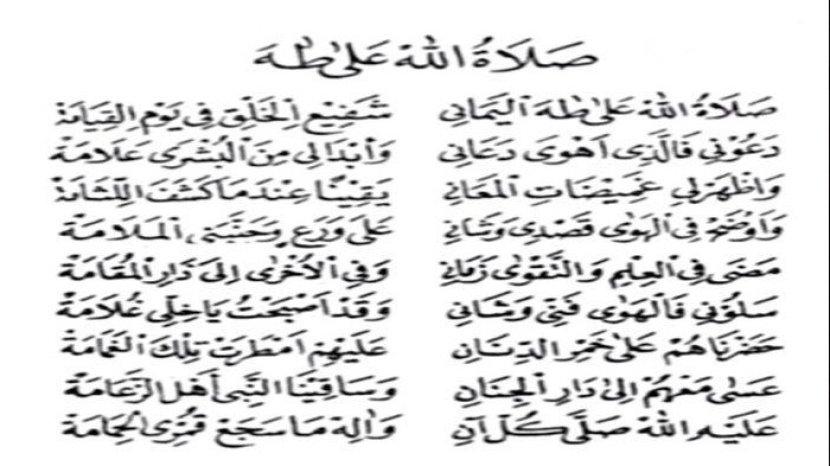 صَلَاةُ اللهْ عَلَىٰ طٰهَ
صَلَاةُ اللهْ عَلَىٰ طٰهَ الْيَمَانِي شَفِيْعِ الْخَلْقِ فِي يَوْمِ الْقِيَامَةْ
دَعُوْنِي فَالَّذِى اَهْوَى دَعَانِي وَاَبْدَالِى مِنَ الْبُشْرَى عَلَامَةْ
وَاَظْهَرْلِي غَمِيْضَاتِ الْمَعَانِي يَقِيْنًا عِنْدَمَا كَشَفَ اللِّثَامَةْ
وَاَوْضَحْ فِي الْهَوٰى قَصْدِى وَشَانِي عَلَى وَرَعٍ وَجَنَّبَنِي الْمَلَامَةْ
مَضَى فِي الْعِلْمِ وَالتَّقْوٰى زَمَانِي وَفِي الْاُخْرٰى اِلَى دَارِ الْمُقَامَةْ
سَلُوْنِي فَالْهَوٰى فَنِّى وَشَانِي وَقَدْ اَصْبَحْتُ يَاخِلِّى غُلَامَةْ
حَضَرْنَاهُمْ عَلَىٰ خَمْرِ الدِّنَانِ عَلَيْهِمْ اَمْطَرَتْ تِلْكَ الْغَمَامَةْ
عَسٰى مَعَهُمْ اِلَىٰ دَارِ الْجِنَانِ وَسَاقِيْنَا النَّبِى أَهْلِ الزَّعَامَةْ
عَلَيْهِ اللهْ صَلَّى كُلَّ آنٍ وَاٰلِهْ مَا سَجَعْ قُمْرِى الْحَمَامَةْ